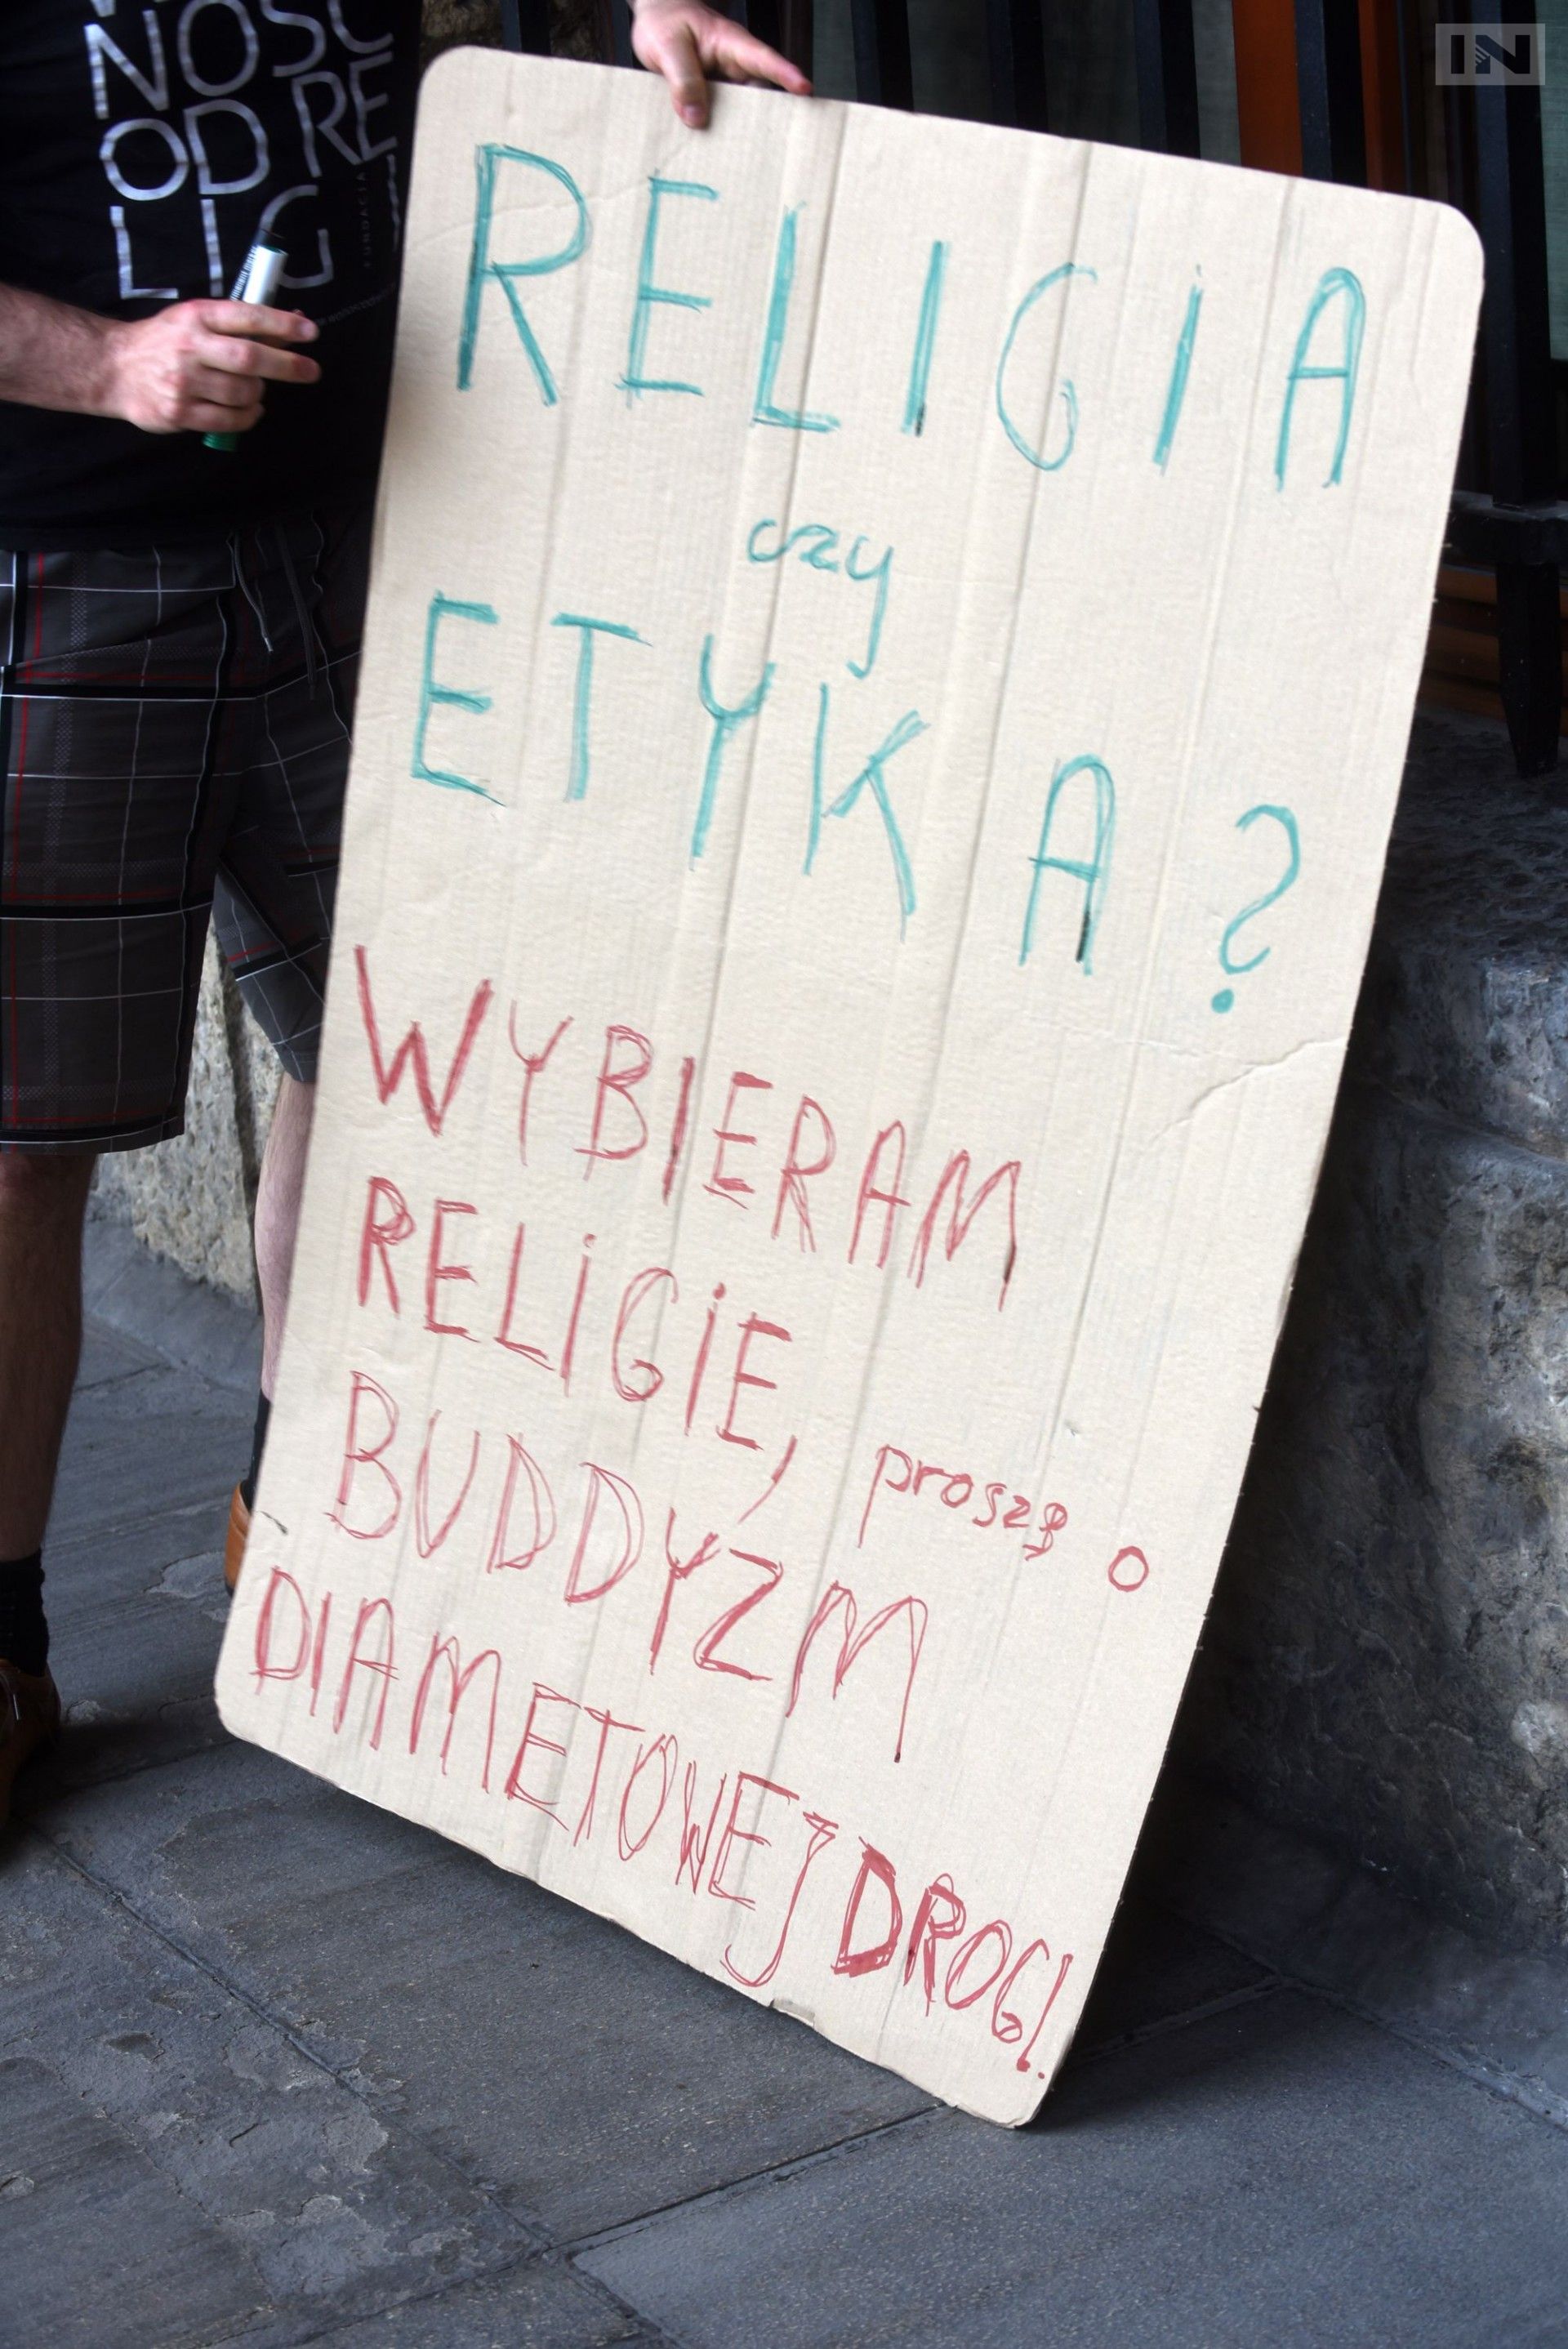 IN
NOŚĆ
OD RE
LIG
FUNDACJA
RELIGIA
czy
ETYKA?
WYBIERAM
RELIGIE, proszę o
BUDDYZM
DIAMETOWEJ DROGI.